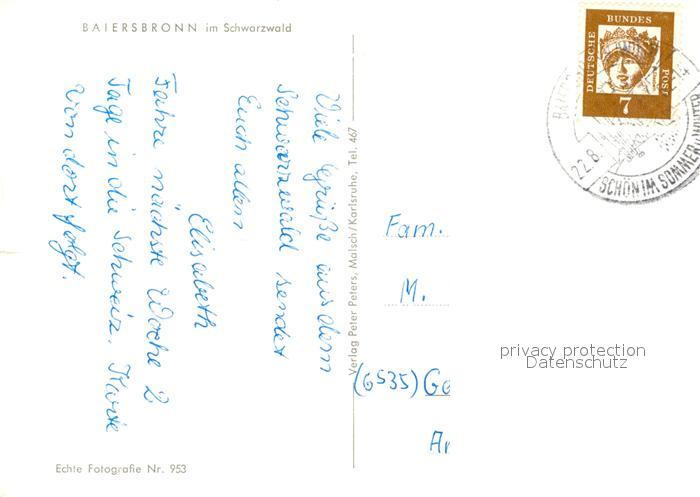 BAIERSBRONN im Schwarzwald
Viele Grüße aus dem
Schwarzwald sendet
Euch allen
Elisabeth
Fahre nächste Woche 2
Tage in die Schweiz. Karte
von dort folgt.
Echte Fotografie Nr. 953
Verlag Peter Peters, Malsch/Karlsruhe, Tel. 467
DEUTSCHE
BUNDES
POST
7
22.8.
SCHÖN IM SOMMER
Fam.
M.
(6535) Ga
Ar
privacy protection
Datenschutz